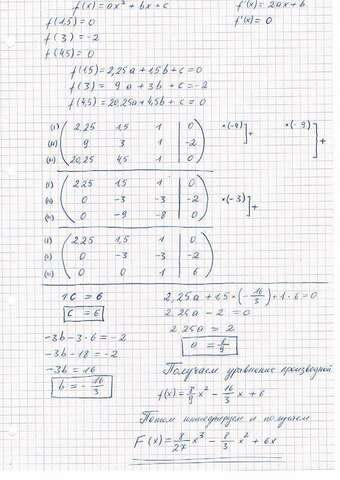 f(x)=ax²+bx+c f'(x)=2ax+b
f(1,5)=0 f'(x)=0
f(3)=-2
f(4,5)=0
f(1,5)=2,25a+1,5b+c=0
f(3)= 9a+3b+c=-2
f(4,5)=20,25a+4,5b+c=0
(I) 2,25 1,5 1 | 0 *(-4)]+ *(-9)]+
(II) 9 3 1 | -2
(III) 20,25 4,5 1 | 0
(I) 2,25 1,5 1 | 0
(II) 0 -3 -3 | -2 *(-3)]+
(III) 0 -9 -8 | 0
(I) 2,25 1,5 1 | 0
(II) 0 -3 -3 | -2
(III) 0 0 1 | 6
1C = 6
C = 6
-3b-3·6=-2
-3b-18=-2
-3b=16
b=-16/3
2,25a+1,5*(-16/3)+1·6=0
2,25a-2=0
2,25a=2
a=8/9
Получаем уравнение производной
f(x)=8/9x²-16/3x+6
Потом интегрируем и получаем
F(x)=8/27x³-8/3x²+6x